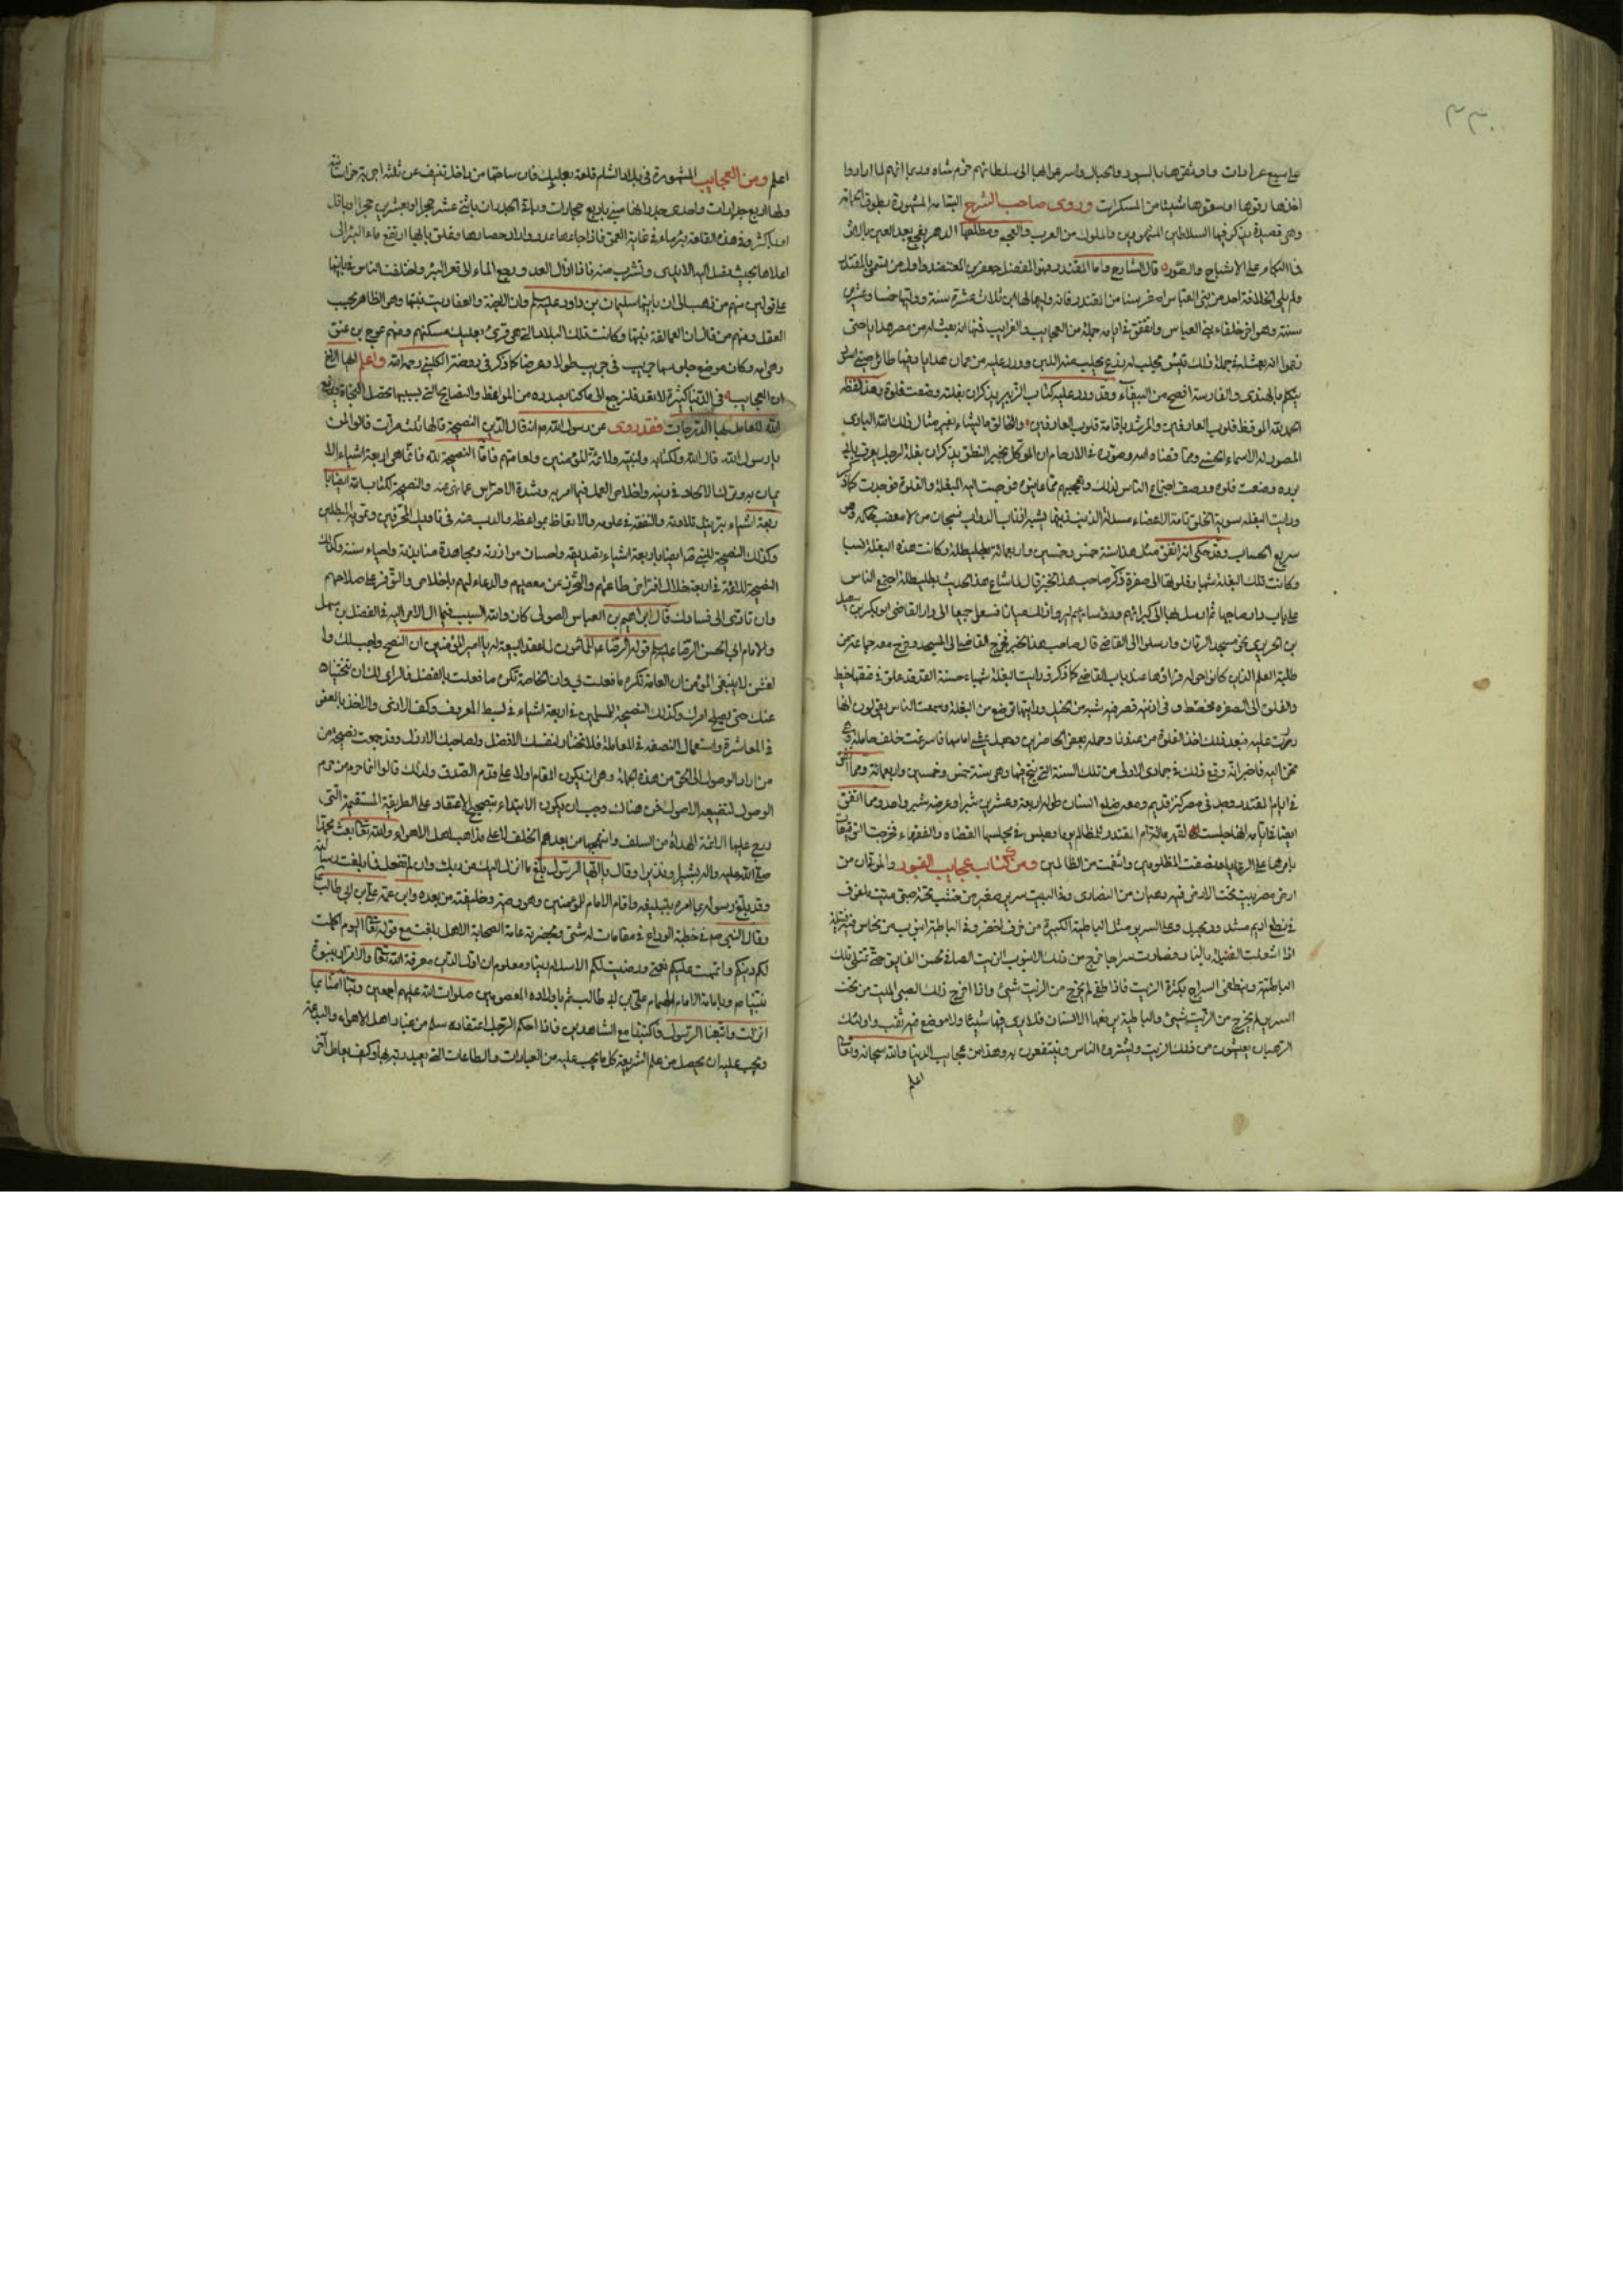 ٣٣٠
على سبع عرادات واوثقوها بالسيور والحبال واسرعوا بها الى سلطانهم خرم شاه وربما انهم لما ارادوا
اخذها رقوها او سقوها شيئا من المسكرات وروى صاحب الشرح البسامة المشهورة بطوق الحمامة
وهي قصيدة يذكر فيها السلاطين المشهورين والملوك من العرب والعجم ومطلعها الدهر يفجع بعد العين بالاثر
فما البكاء على الاشباح والصور قال الشارح واما المقتدر فهو ابو الفضل جعفر بن المعتضد واول من تسمى بالمقتدر
ولم يلي الخلافة احد من بني العباس اصغر سنا من المقتدر فانه وليها وله ثلاث عشرة سنة ووليها خمسا وعشرين
سنة وهو اخر خلفاء بني العباس واتفق في ايامه جملة من العجايب والغرايب فمنها انه بعث له من مصر هدايا حتى
انه بعث له في جملة ذلك تيس يحلب له ضرع يحلب منه اللبن وورد عليه من عمان هدايا وفيها طائر صيني اسود
يتكلم بالهندي والفارسية افصح من الببغاء وقد ورد عليه كتاب البريد يذكر ان بغلة وضعت فلوة وهذا لفظه
الحمد لله الموقظ قلوب الغافلين والمرشد باقامة قلوب العارفين والخالق ما يشاء بغير مثال ذلك الله الباري
المصور له الاسماء الحسنى ومما قضاه الله وصوره في الارحام ان الموكل بخبر النطق يذكر ان بغلة لرجل يعرف بابي
برده وضعت فلوة ووصف اجتماع الناس لذلك وتعجبهم مما عاينوه فوجهت اليه البغلة والفلوة فوجدت كما ذكر
ورايت البغلة سوية الخلق تامة الاعضاء مسدلة الذنب ذنبها يشبه اذناب الدواب فسبحان من لا معقب لحكمه وهو
سريع الحساب وقد حكي انه اتفق مثل هذا سنة خمس وخمسين واربعمائة بطليطلة وكانت هذه البغلة لسبا
وكانت تلك البغلة شهبا وفلوها الى صفرة ذكر صاحب هذا الخبر قال لما شاع هذا الحديث بطليطلة اجتمع الناس
على باب دار صاحبها ثم ارسل بها الى كبرائهم ورؤسائهم
بن الحريري نحو مسجد الزمان وارسلوا الى القاضي قال صاحب هذا الخبر فخرج القاضي الى المسجد وخرج معه جماعة من
طلبة العلم الذين كانوا حوله فراوها عند باب القاضي كما ذكر ورايت البغلة شهباء حسنة القد قد علق في عنقها خيط
والفلو الى الصفرة مخطط وفي اذنيه قصر فيه شبه من الخيل ورايتها ترضع من البغلة وسمعت الناس يقولون انها
نحن اليه فاخبر انه وقع ذلك في جمادى الاولى من تلك السنة التي نتج فيها وهي سنة خمس وخمسين واربعمائة ومما اتفق
في ايام المقتدر وجد في مصر كنز قديم ومعه ضلع انسان طوله اربعة وعشرين شبرا وعرضه شبر واحد ومما اتفق
ايضا في ايامه انها جلست لقهرمانة ام المقتدر للمظالم يوما وجلس في مجلسها القضاة والفقهاء فخرجت التوقيعات
بامرها على الرعايا وانصفت المظلومين وانتقمت من الظالمين ومن كتاب عجايب القبور والموتى ان من
ارض مصر بيت تحت الارض فيه رهبان من النصارى وفي البيت سرير صغير من خشب تحته صبي ميت ملفوف
في نطع اديم مشدود بحبل وعلى السرير مثل الباطية الكبيرة من خزف اخضر وفي الباطية انبوب من نحاس فيه فتيلة
اذا اشعلت الفتيلة بالنار وصارت سراجا خرج من ذلك الانبوب الزيت الصافي الحسن الفايق حتى تمتلي تلك
الباطية وينطفي السراج بكثرة الزيت فاذا طفي لم يخرج من الزيت شيئ واذا اخرج ذلك الصبي الميت من تحت
السرير لم يخرج من الزيت شيئ والباطية يرفعها الانسان فلا يرى فيها شيئا ولا موضع فيه ثقب واولئك
الرهبان يعيشون من ذلك الزيت ويشتروه الناس وينتفعون به وهذا من عجايب الدنيا والله سبحانه وتعالى
اعلم
اعلم ومن العجايب المشهورة في بلاد الشام قلعة بعلبك فان ساحتها من داخل تنيف عن ثلثة اجربة
ولها اربع جدارات واحدى جدرانها مبني باربع حجارات وباقي الجدران باثني عشر حجرا او بعشرين حجرا او باقل
او باكثر وفي هذه القلعة بئر ماء في غاية العمق فاذا جاءها عدو واراد حصارها وغلق بابها ارتفع ماء البئر الى
اعلاها بحيث تصل اليه الايدي وتشرب منه فاذا زال العدو رجع الماء الى قعر البئر واختلفت الناس في بانيها
على قولين منهم من ذهب الى ان بانيها سليمان بن داود عليه السلم وان الجنة والعفاريت بنتها وهو الظاهر بحسب
العقل ومنهم من قال ان العمالقة بنتها وكانت تلك البلاد التي هي قرى بعلبك مسكنهم ومنهم عوج بن عنق
وهي امه وكان موضع جلوسها جريب في جريب طولا وعرضا كما ذكر في روضة الكليني رحمه الله واعلم ايها الاخ
ان العجايب في الدنيا كثيرة لا تعد فلنرجع الى ما كنا بصدده من المواعظ والنصايح التي بسببها يحصل النجاة ويرفع
الله للعامل بها الدرجات فقد روى عن رسول الله ص انه قال الدين النصيحة قالها ثلث مرات قالوا لمن
يا رسول الله قال لله ولكتابه ولنبيه ولائمة المؤمنين ولعامتهم فاما النصيحة لله فانما هي اربعة اشياء الا
يمان به وترك الالحاد في دينه واخلاص العمل فيما امر به وشدة الاحتراس عما نهى عنه والنصيحة لكتاب الله ايضا با
ربعة اشياء بترتيل تلاوته والتفقه في علومه والاتعاظ بمواعظه والذب عنه في تاويل المحرفين وتمويه المبطلين
وكذلك النصيحة للنبي ص ايضا باربعة اشياء بتصديقه واحسان موازرته ومجاهدة منابذيه واحياء سنته وكذلك
النصيحة للائمة في اربعة خلال افتراض طاعتهم والتحرز عن معصيتهم والدعاء لهم باخلاص والتوفر على صلاحهم
وان تادى الى فسادك قال ابراهيم بن العباس الصولي كان والله السبب فيما آل الامر اليه في الفضل بن سهل
والامام ابي الحسن الرضا عليه السلم قوله الرضا ع للمامون لما عقد البيعة له يا امير المؤمنين ان النصح واجب لك وا
لغش لا ينبغي لمؤمن ان العامة تكره ما فعلت بي وان الخاصة تكره ما فعلت بالفضل فالراي لك ان تنحينا
عنك حتى يصلح امرك وكذلك النصيحة للمسلمين في اربعة اشياء في بسط المعروف وكف الاذى والاخذ بالعفو
في المعاشرة واستعمال النصفة في المعاملة فلا تختار لنفسك الافضل ولصاحبك الارذل وقد جمعت نصيحة من
من اراد الوصول الى الحق من هذه الجملة وهي ان يكون المقام اولا على قدم الصدق ولذلك قالوا انما حرم من حرم
الوصول لتضييعه الاصول فمن هناك وجب ان يكون الابتداء بتصحيح الاعتقاد على الطريقة المستقيمة التي
درج عليها الائمة الهداة من السلف واتبعها من بعدهم الخلف لا على مذاهب اهل الاهواء والله تعالى بعث محمدا
صلى الله عليه واله بشيرا ونذيرا وقال يا ايها الرسول بلغ ما انزل اليك من ربك وان لم تفعل فما بلغت رسالته
وقد بلغ رسوله ما امره بتبليغه واقام الامام للمؤمنين وهو وصيه وخليفته من بعده وابن عمه علي بن ابي طالب
وقال النبي ص في خطبة الوداع في مقامات له شتى وبحضرة عامة الصحابة الاهل بلغت مع قوله تعالى اليوم اكملت
لكم دينكم واتممت عليكم نعمتي ورضيت لكم الاسلام دينا ومعلوم ان اول الدين معرفة الله تعالى والاقرار بنبوة
نبينا ص وبامامة الامام الهمام علي بن ابي طالب ثم باولاده المعصومين صلوات الله عليهم اجمعين ربنا امنا بما
انزلت واتبعنا الرسول فاكتبنا مع الشاهدين فاذا احكم الرجل اعتقاده سلم من عناد اهل الاهواء والبدعة
ويجب عليه ان يحصل من علم الشريعة كل ما يجب عليه من العبادات والطاعات